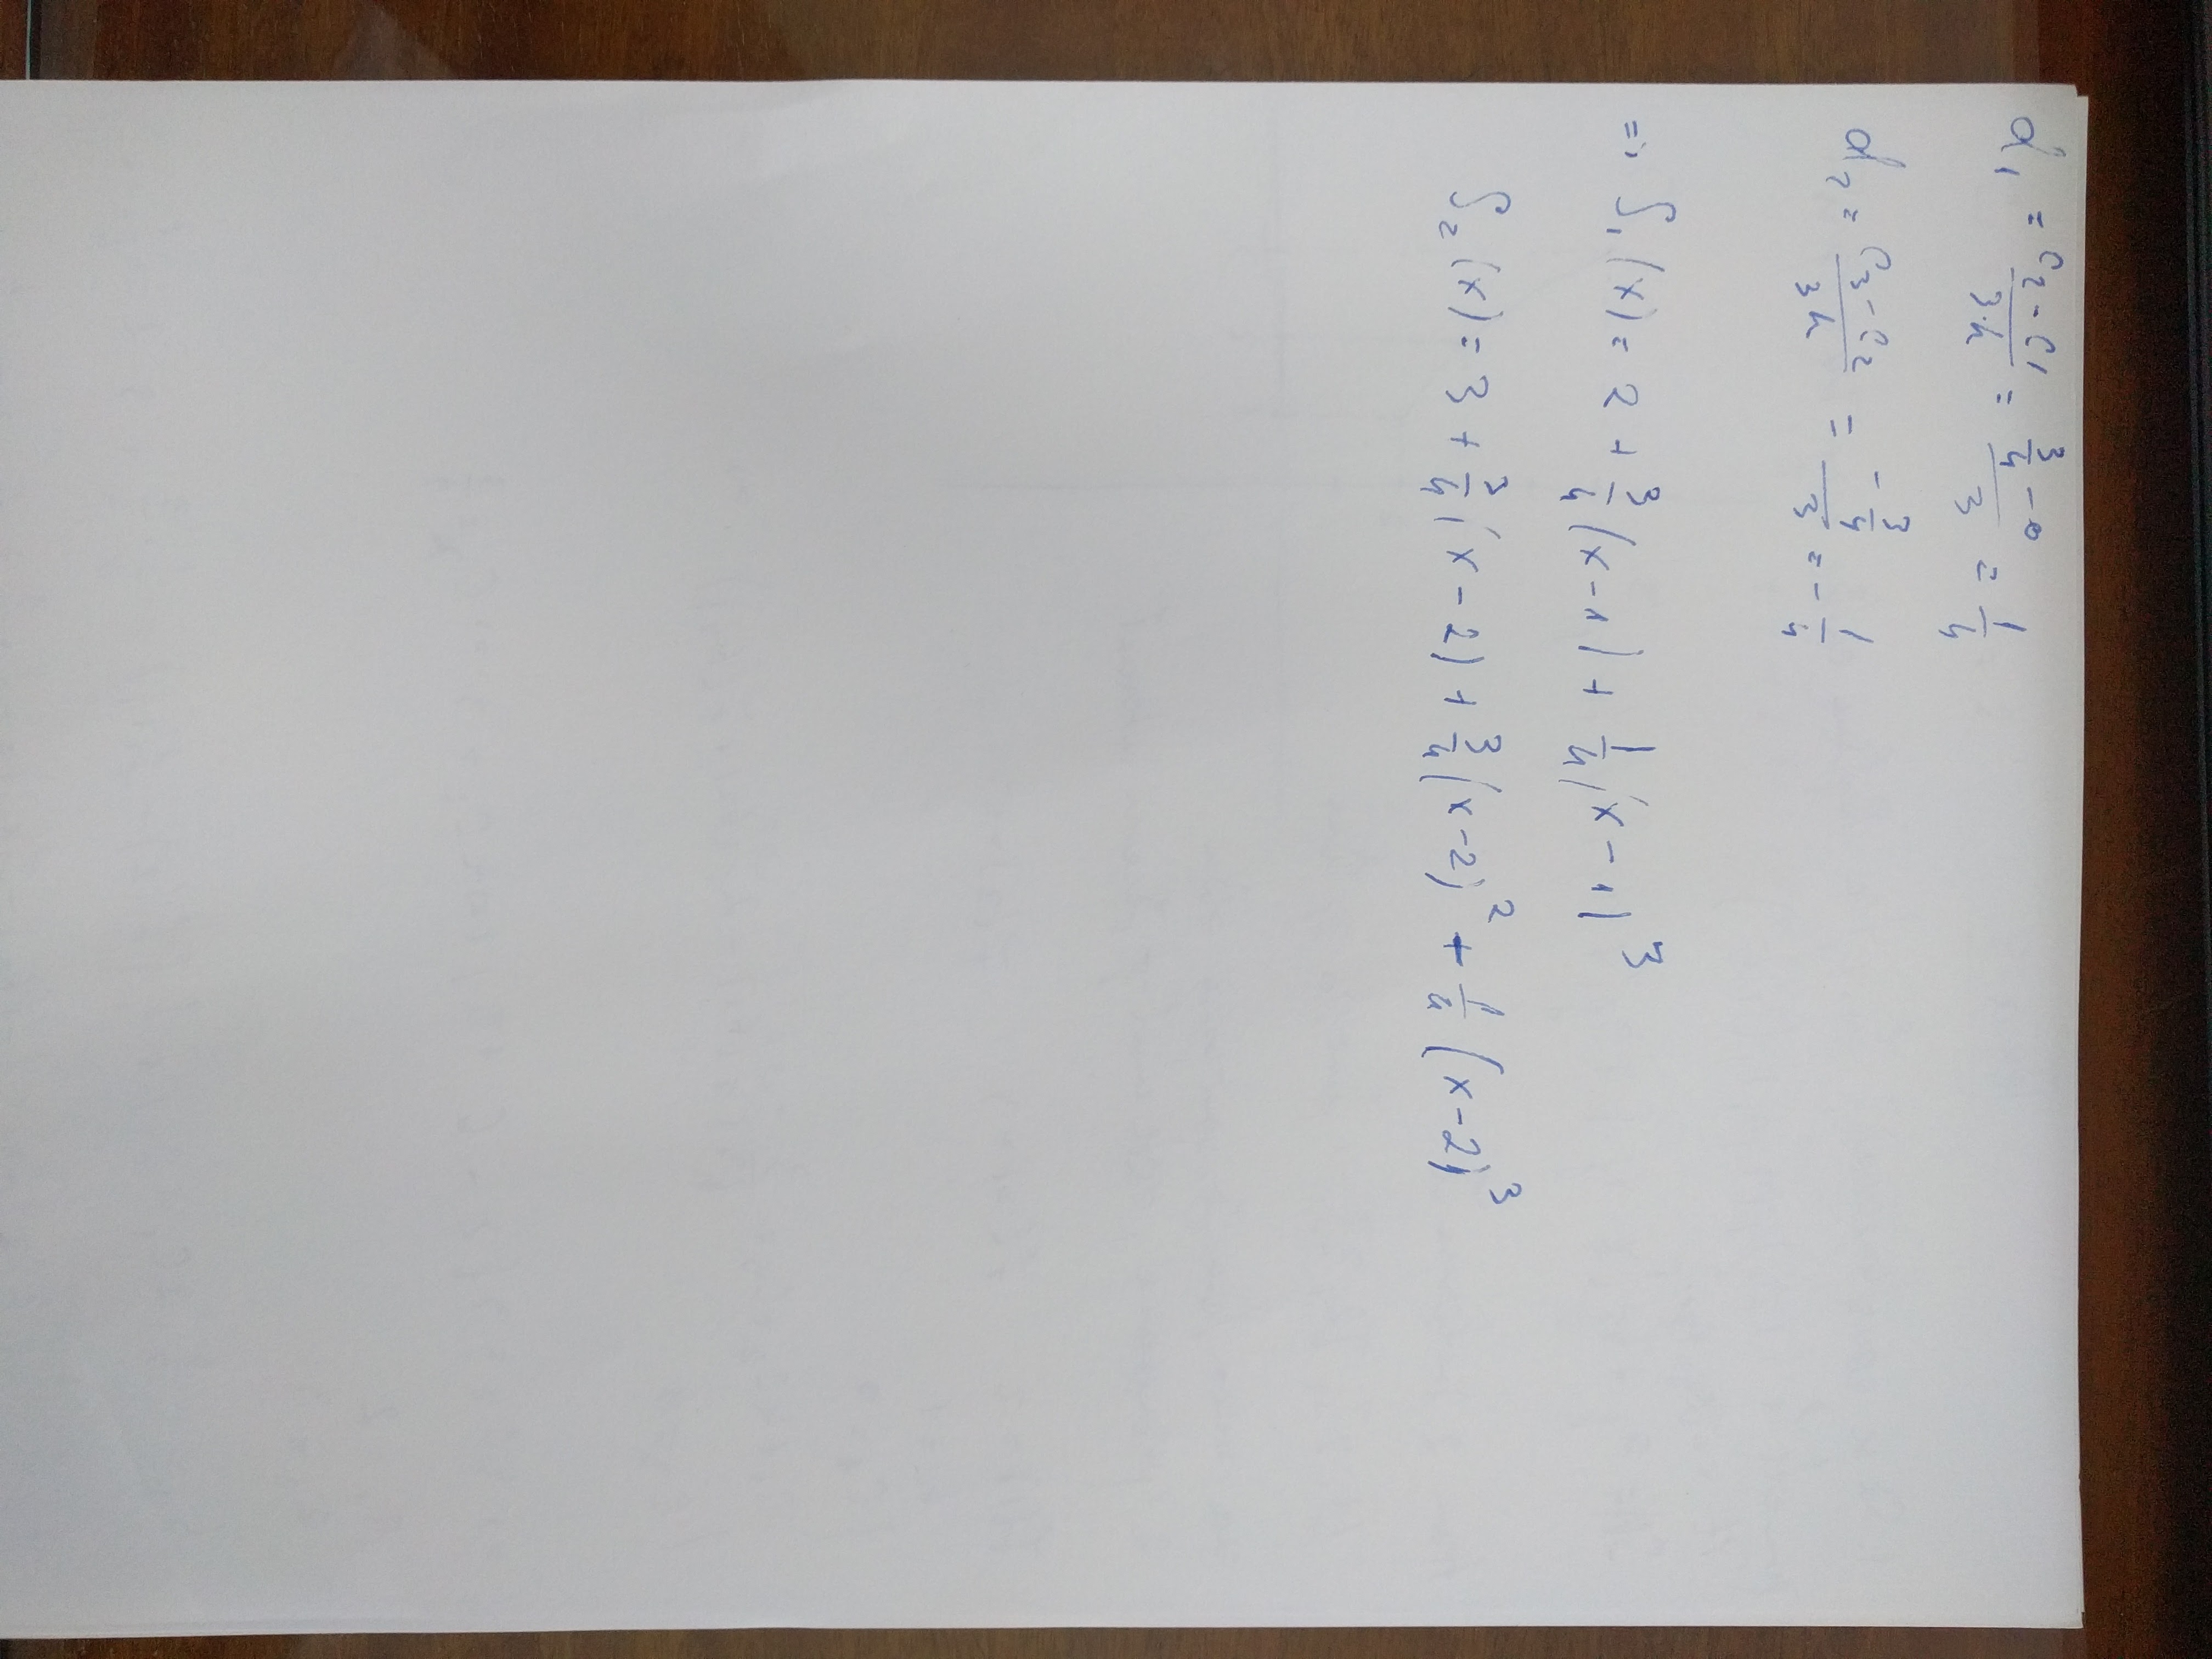 d₁ = (c₂ - c₁)/(3·h) = (3/4 - 0)/3 = 1/4
d₂ = (c₃ - c₂)/(3h) = (-3/4)/3 = -1/4
=> S₁(x) = 2 + 3/4(x-1) + 1/4(x-1)³
S₂(x) = 3 + 3/4(x-2) + 3/4(x-2)² + 1/4(x-2)³